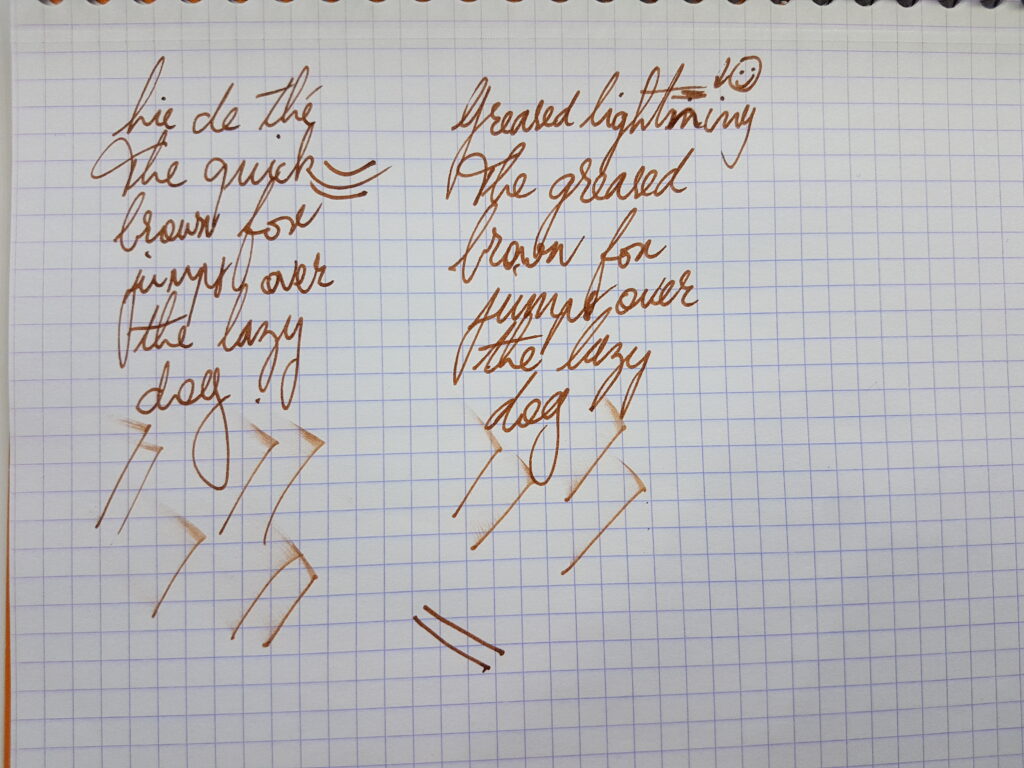 lie de thé
The quick
brown fox
jumps over
the lazy
dog.
Greased lightning
The greased
brown fox
jumps over
the lazy
dog